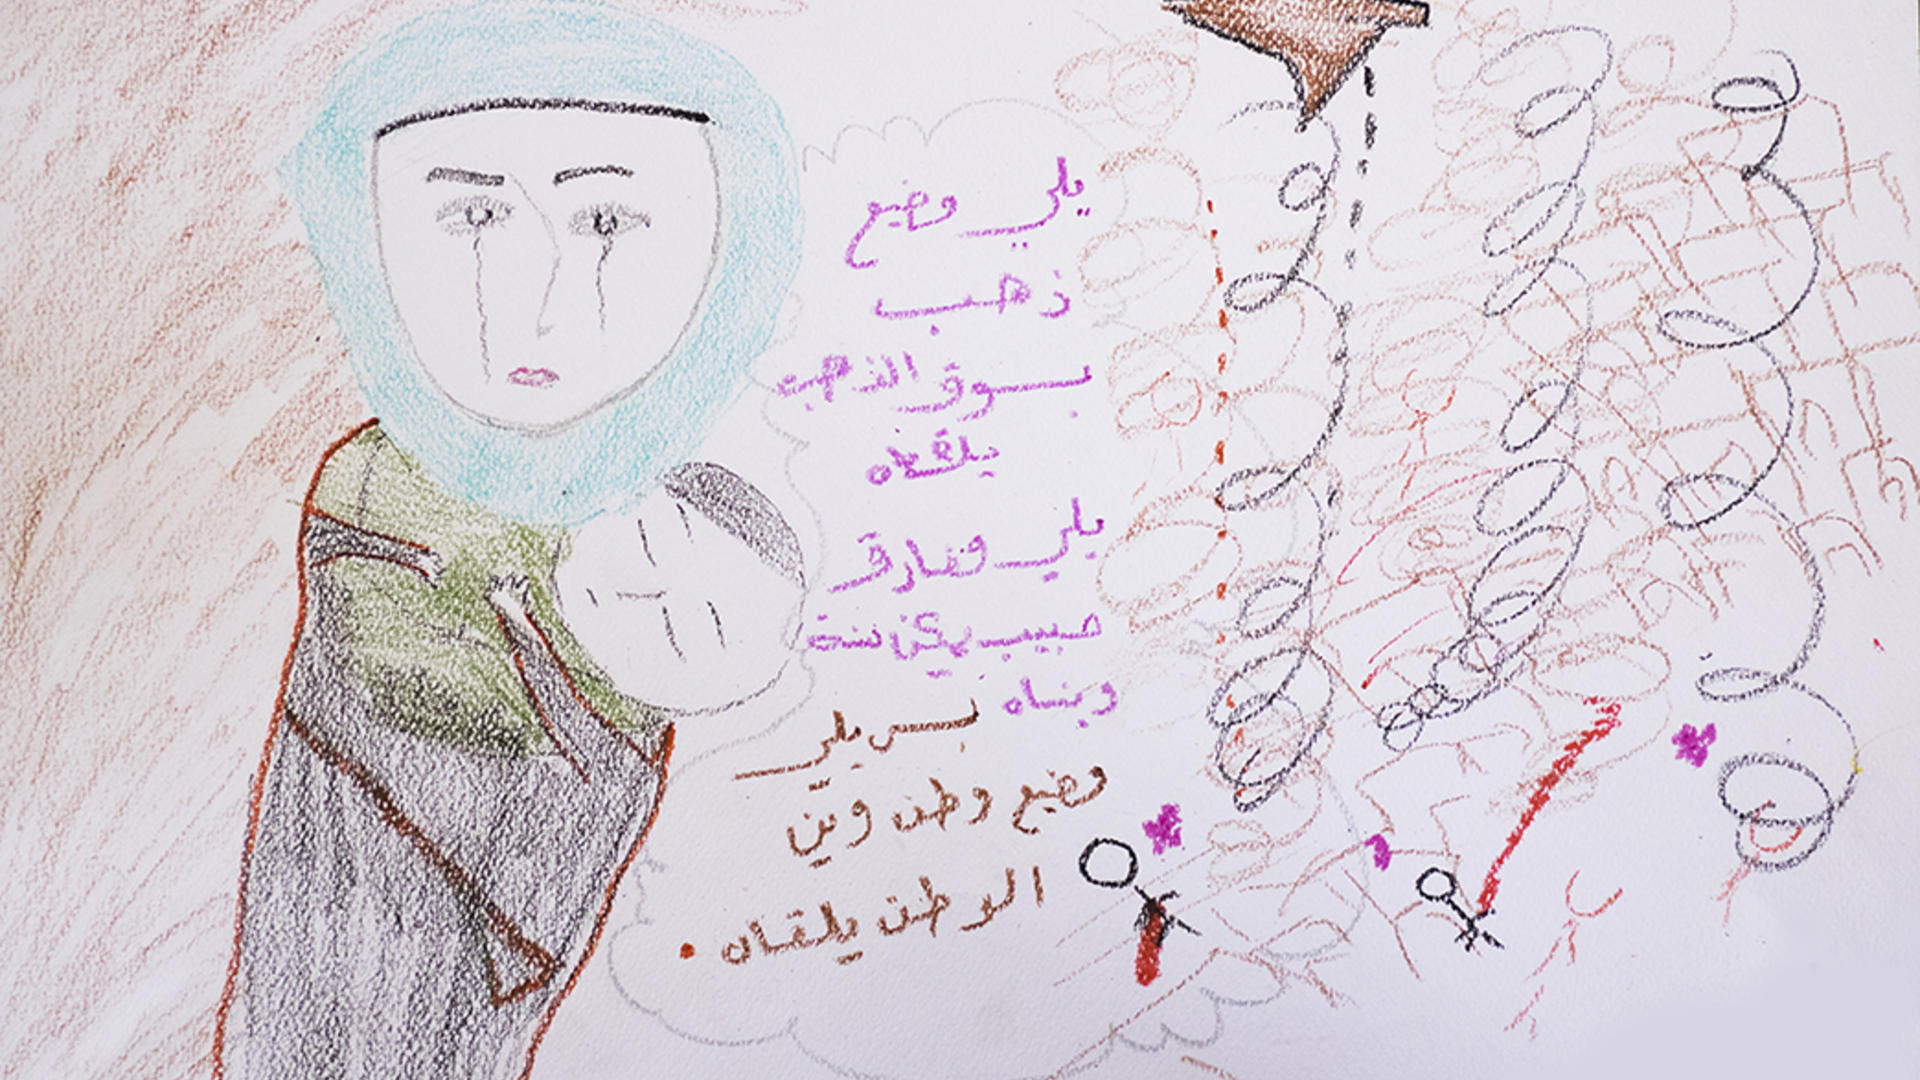 يلي مضيع
ذهب
بسوق الذهب
يلقاه
يلي مفارق
حبيب يمكن سنة
وينساه
بس يلي
مضيع وطن وين
الوطن يلقاه .